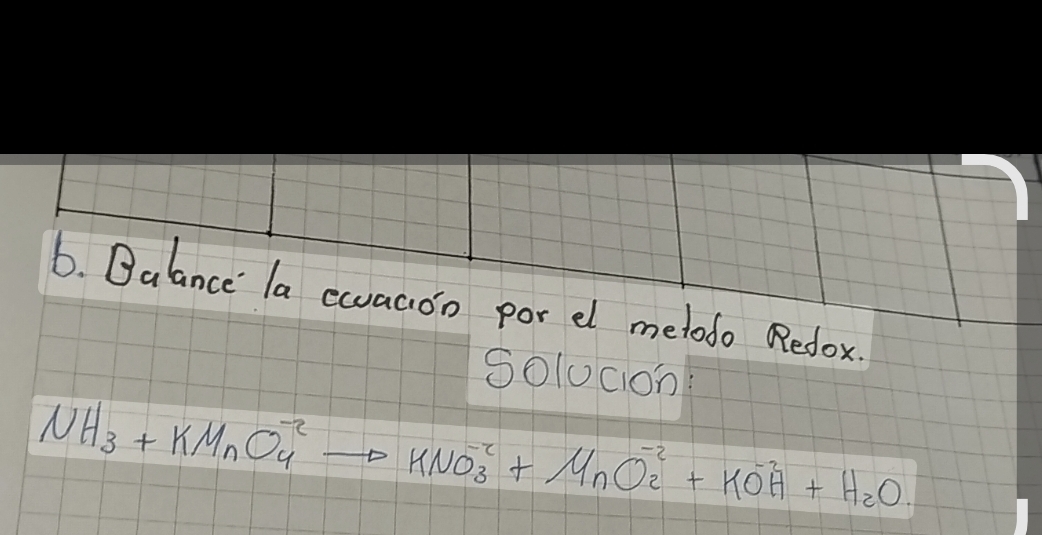 b. Balancé la ecuación por el metodo Redox.
Solución:
NH₃ + KMnO₄⁻² → KNO₃⁻² + MnO₂⁻² + KO⁻²H + H₂O.